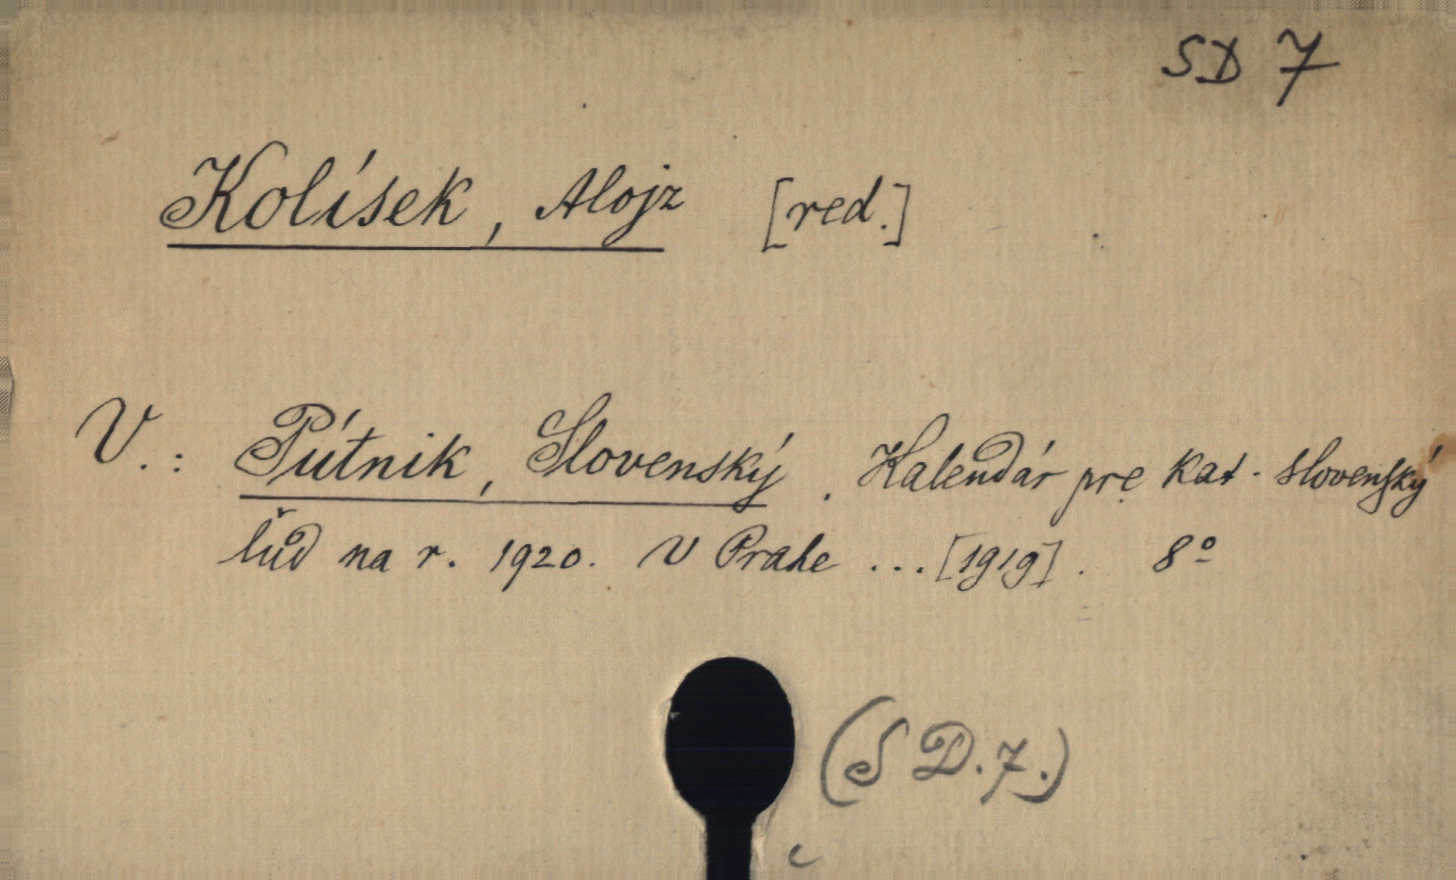 SD 7
Kolísek, Alojz [red.]
V.: Pútnik, Slovenský. Kalendár pre kat. slovenský
ľud na r. 1920. V Prahe ... [1919]. 8º
(S D. 7.)